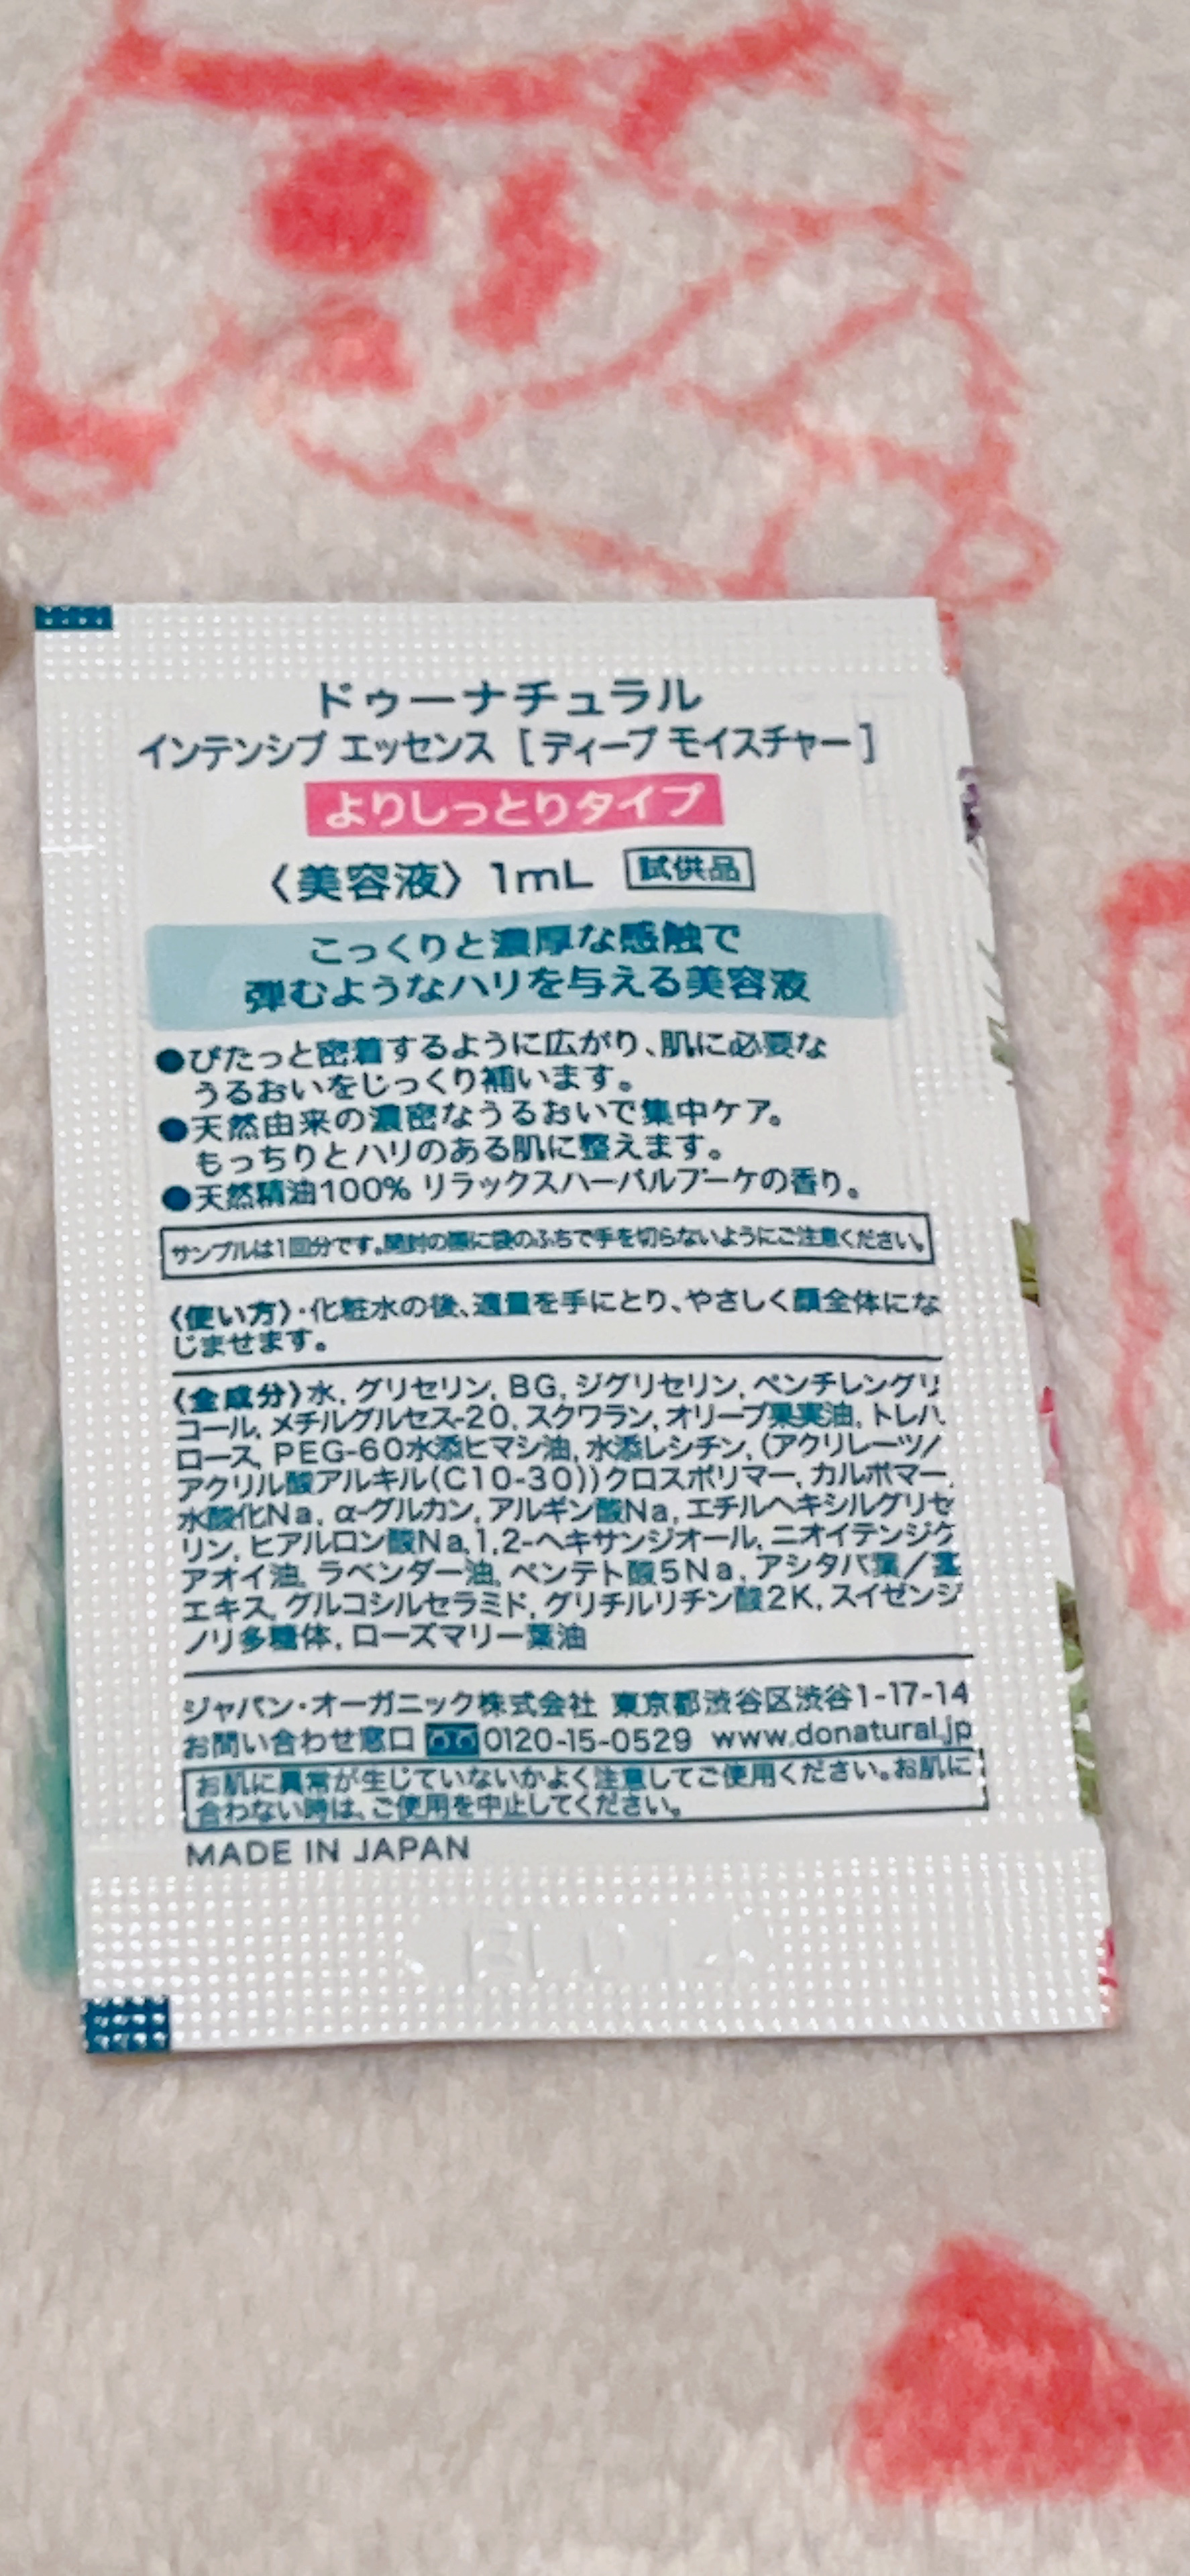 ドゥーナチュラル
インテンシブ エッセンス [ディープ モイスチャー]
よりしっとりタイプ
〈美容液〉1mL 試供品
こっくりと濃厚な感触で
弾むようなハリを与える美容液
●ぴたっと密着するように広がり、肌に必要な
うるおいをじっくり補います。
●天然由来の濃密なうるおいで集中ケア。
もっちりとハリのある肌に整えます。
●天然精油100% リラックスハーバルブーケの香り。
サンプルは1回分です。開封の際に袋のふちで手を切らないようにご注意ください。
〈使い方〉・化粧水の後、適量を手にとり、やさしく顔全体にな
じませます。
〈全成分〉水, グリセリン, BG, ジグリセリン, ペンチレングリ
コール, メチルグルセス-20, スクワラン, オリーブ果実油, トレハ
ロース, PEG-60水添ヒマシ油, 水添レシチン, (アクリレーツ/
アクリル酸アルキル(C10-30))クロスポリマー, カルボマー,
水酸化Na, α-グルカン, アルギン酸Na, エチルヘキシルグリセ
リン, ヒアルロン酸Na, 1,2-ヘキサンジオール, ニオイテンジク
アオイ油, ラベンダー油, ペンテト酸5Na, アシタバ葉/茎
エキス, グルコシルセラミド, グリチルリチン酸2K, スイゼンジ
ノリ多糖体, ローズマリー葉油
ジャパン・オーガニック株式会社 東京都渋谷区渋谷1-17-14
お問い合わせ窓口 0120-15-0529 www.donatural.jp
お肌に異常が生じていないかよく注意してご使用ください。お肌に
合わない時は、ご使用を中止してください。
MADE IN JAPAN